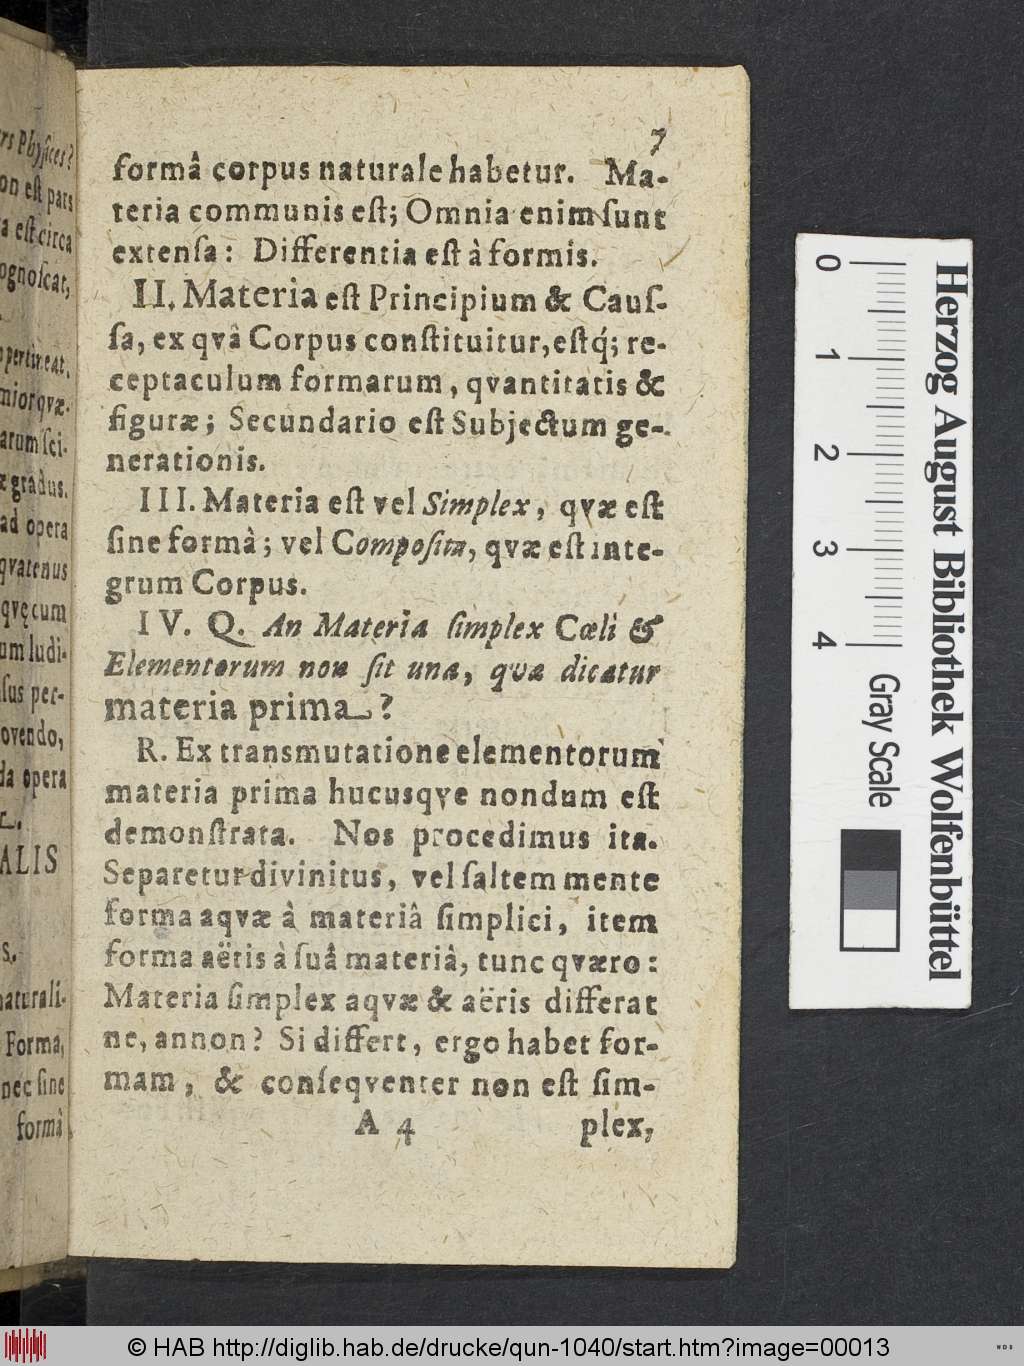 7
formâ corpus naturale habetur. Ma-
teria communis eſt; Omnia enim ſunt
extenſa: Differentia eſt à formis.
II. Materia eſt Principium & Cauſ-
ſa, ex qvâ Corpus conſtituitur, eſtq́; re-
ceptaculum formarum, qvantitatis &
figuræ; Secundario eſt Subjectum ge-
nerationis.
III. Materia eſt vel Simplex, qvæ eſt
ſine formâ; vel Compoſita, qvæ eſt inte-
grum Corpus.
IV. Q. An Materia ſimplex Cœli &
Elementorum non ſit una, qvæ dicatur
materia prima?
R. Ex transmutatione elementorum
materia prima hucusqve nondum eſt
demonſtrata. Nos procedimus ita.
Separetur divinitus, vel ſaltem mente
forma aqvæ à materiâ ſimplici, item
forma aëris à ſuâ materiâ, tunc qværo:
Materia ſimplex aqvæ & aëris differat
ne, annon? Si differt, ergo habet for-
mam, & conſeqventer non eſt ſim-
A 4 plex,
ers Phyſices?
on eſt pars
a eſt circa
ognoſcat,
pertineat.
miorqvæ-
arum ſci-
æ gradus.
ad opera
qvatenus
qvęcum
um ludi-
ſus per-
ovendo,
da opera
ALIS
s.
naturali-
Forma,
nec ſine
formâ
0
1
2
3
4
Gray Scale
Herzog August Bibliothek Wolfenbüttel
© HAB http://diglib.hab.de/drucke/qun-1040/start.htm?image=00013